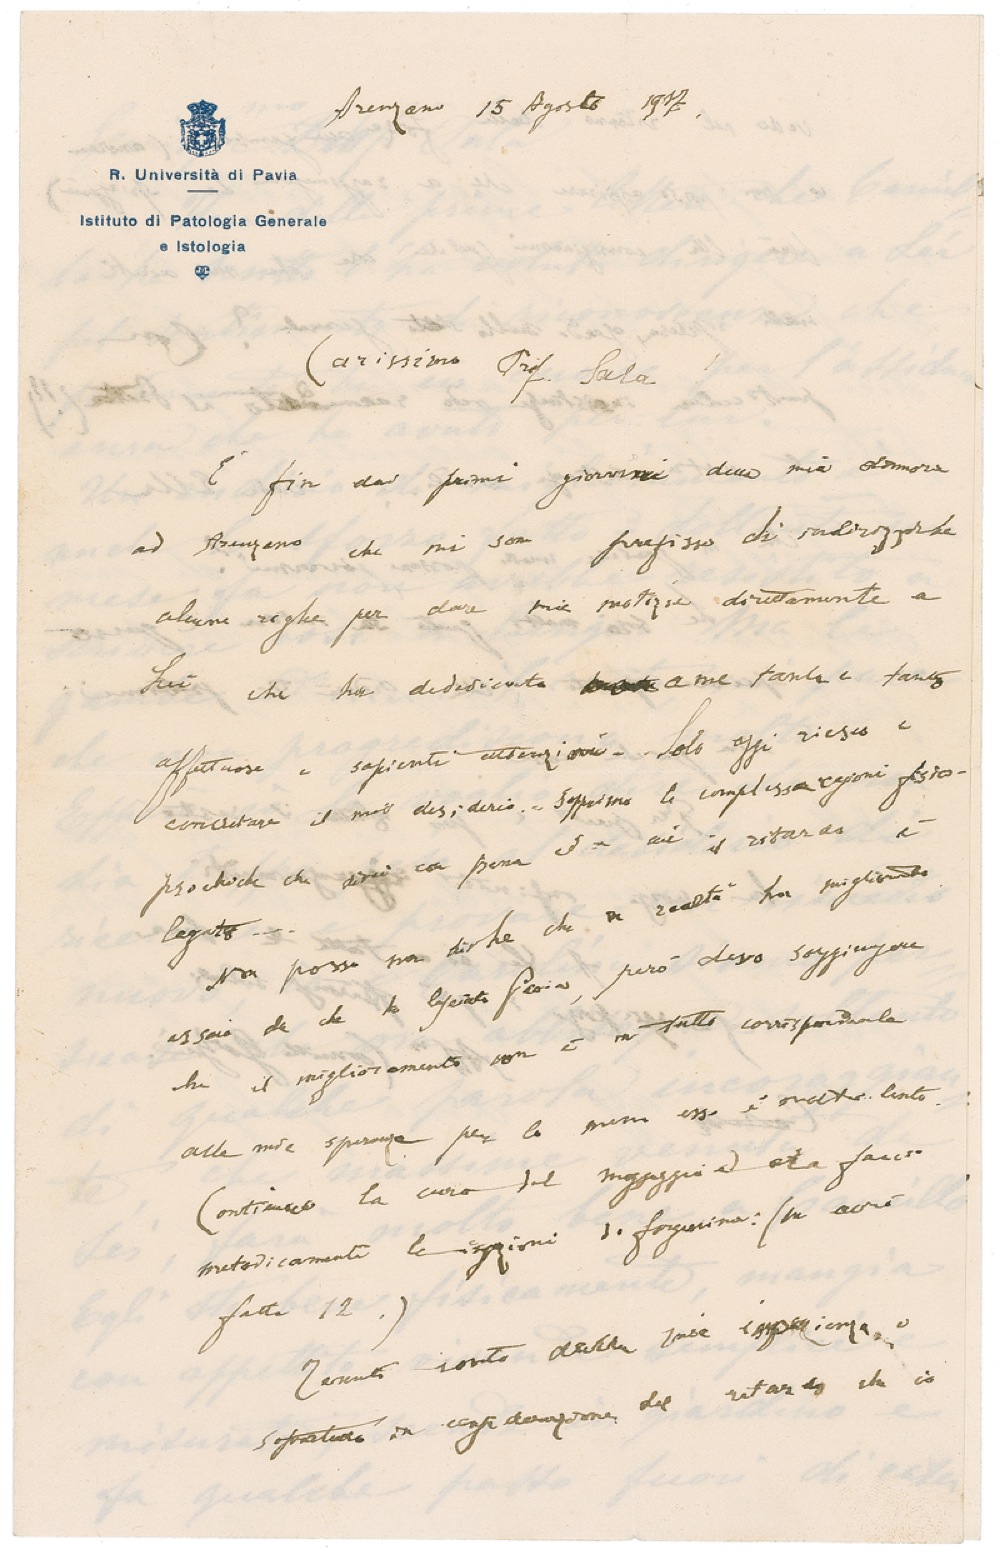 Arenzano 15 Agosto 1917.
R. Università di Pavia
Istituto di Patologia Generale
e Istologia
Carissimo Prof. Sala!
È fin dai primi giorni della mia dimora
ad Arenzano che mi son prefisso di
alcune righe per dare mie notizie direttamente a
Lei che ha dedicato a me tante e tante
affettuose e sapienti attenzioni. Solo oggi riesco a
concretare il mio desiderio. le complesse ragioni fisio-
psichiche che con pena ed a cui il ritardo è
legato ....
Non posso non dirle che in realtà ho migliorato
assai da che ho lasciato Pavia, però devo soggiungere
che il miglioramento non è in tutto corrispondente
alle mie speranze per lo meno esso è molto lento.
Continuo la cura del e faccio
metodicamente le iniezioni di : (ne avrò
fatte 12.)
Tenuto conto della mia impazienza, e
sopratutto in considerazione del ritardo che io